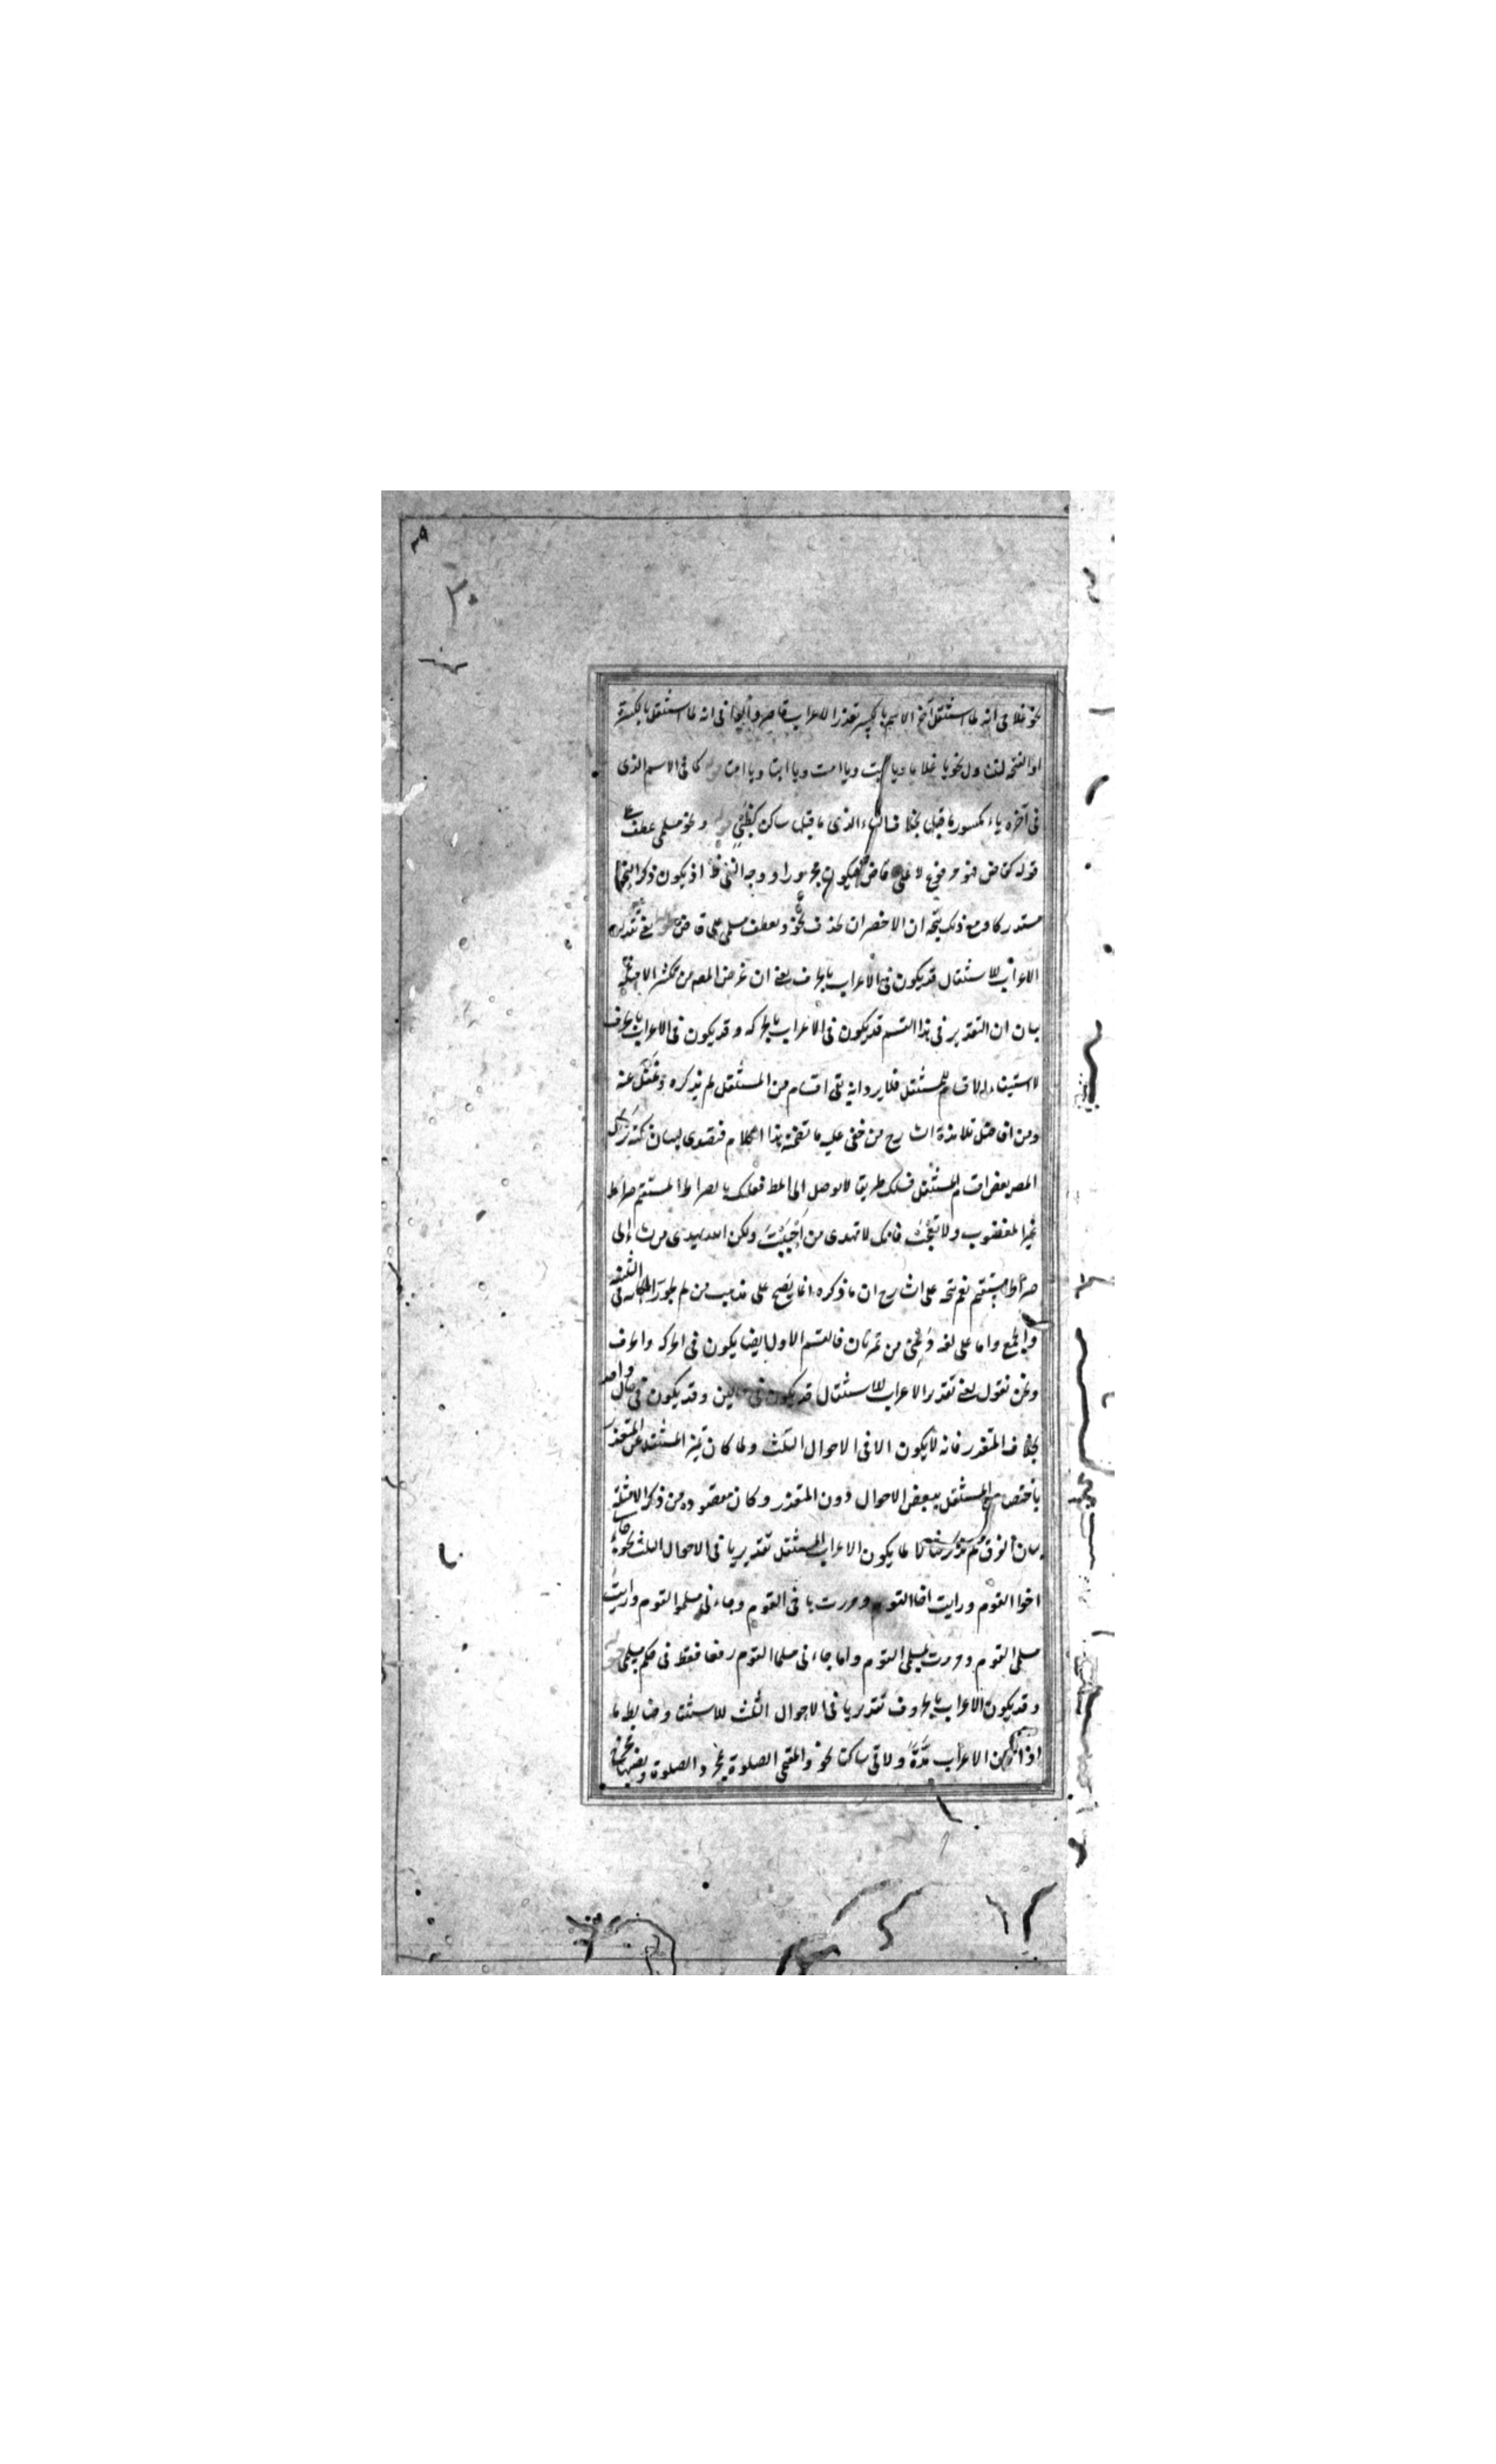 نحو غلامى انه لما اشتغل آخر الاسم بالكسر تعذر الاعراب قاصر وايضا فى انه لما اشتغل بالكسرة
او الفتحة لتناول نحو يا غلاما ويا ابت ويا امت ويا ابتا ويا امتا كما فى الاسم الذى
فى آخره ياء مكسور ما قبلها بخلاف الياء الذى ما قبله ساكن كظبى ونحو مسلمى عطف على
قوله كقاض فهو مرفوع لا على قاض فيكون مجرورا ووجه النفى ظ اذ يكون ذكر النحو
مستدركا ومع ذلك يتجه ان الاخصر ان يحذف نحو ويعطف مسلمى على قاض يعنى تقدير
الاعراب للاستثقال قد يكون فى الاعراب بالحرف يعنى ان غرض المصه من تكثير الامثلة
بيان ان التقدير فى هذا القسم قد يكون فى الاعراب بالحركه وقد يكون فى الاعراب بالحرف
لا استيفاء الاقسام للمستثقل فلا يرد انه بقى اقسام من المستثقل لم يذكره وغفل عنه
ومن افاضل تلامذة الشارح من خفى عليه ما تضمنه هذا الكلام فتصدى لبيان نكته ترك
المصر بعض اقسام المستثقل فسلك طريقا لا يوصل الى المط فعليك بالصراط المستقيم صراط
غير المغضوب ولا تعجب فانك لا تهدى من احببت ولكن الله يهدى من يشاء الى
صراط مستقيم نعم يتجه على الشارح ان ما ذكره انما يصح على مذهب من لم يجوز الحكاية فى التثنية
والجمع واما على لغة دعنى من تمرتان فالقسم الاول ايضا يكون فى الحركه والحرف
ونحن نقول يعنى تقدير الاعراب للاستثقال قد يكون فى حالين وقد يكون فى حال واحد
بخلاف المتعذر فانه لا يكون الا فى الاحوال الثلث ولما كان تميز المستثقل عن المتعذر
باختصاص المستثقل ببعض الاحوال دون المتعذر وكان مقصوده من ذكر الامثلة
بيان الفرق لم يذكر مثالا لما يكون الاعراب المستثقل تقديريا فى الاحوال الثلث نحو جاءنى
اخوا القوم ورايت اخا القوم ومررت باخى القوم وجاءنى مسلموا القوم ورايت
مسلمى القوم ومررت بمسلمى القوم واما جاءنى مسلما القوم رفعا فقط فى حكم مسلمى
وقد يكون الاعراب بالحروف تقديريا فى الاحوال الثلث للاستثقال وضابطه ما
اذا كان الاعراب مدة ولاقى ساكنا نحو والمقيمى الصلوة